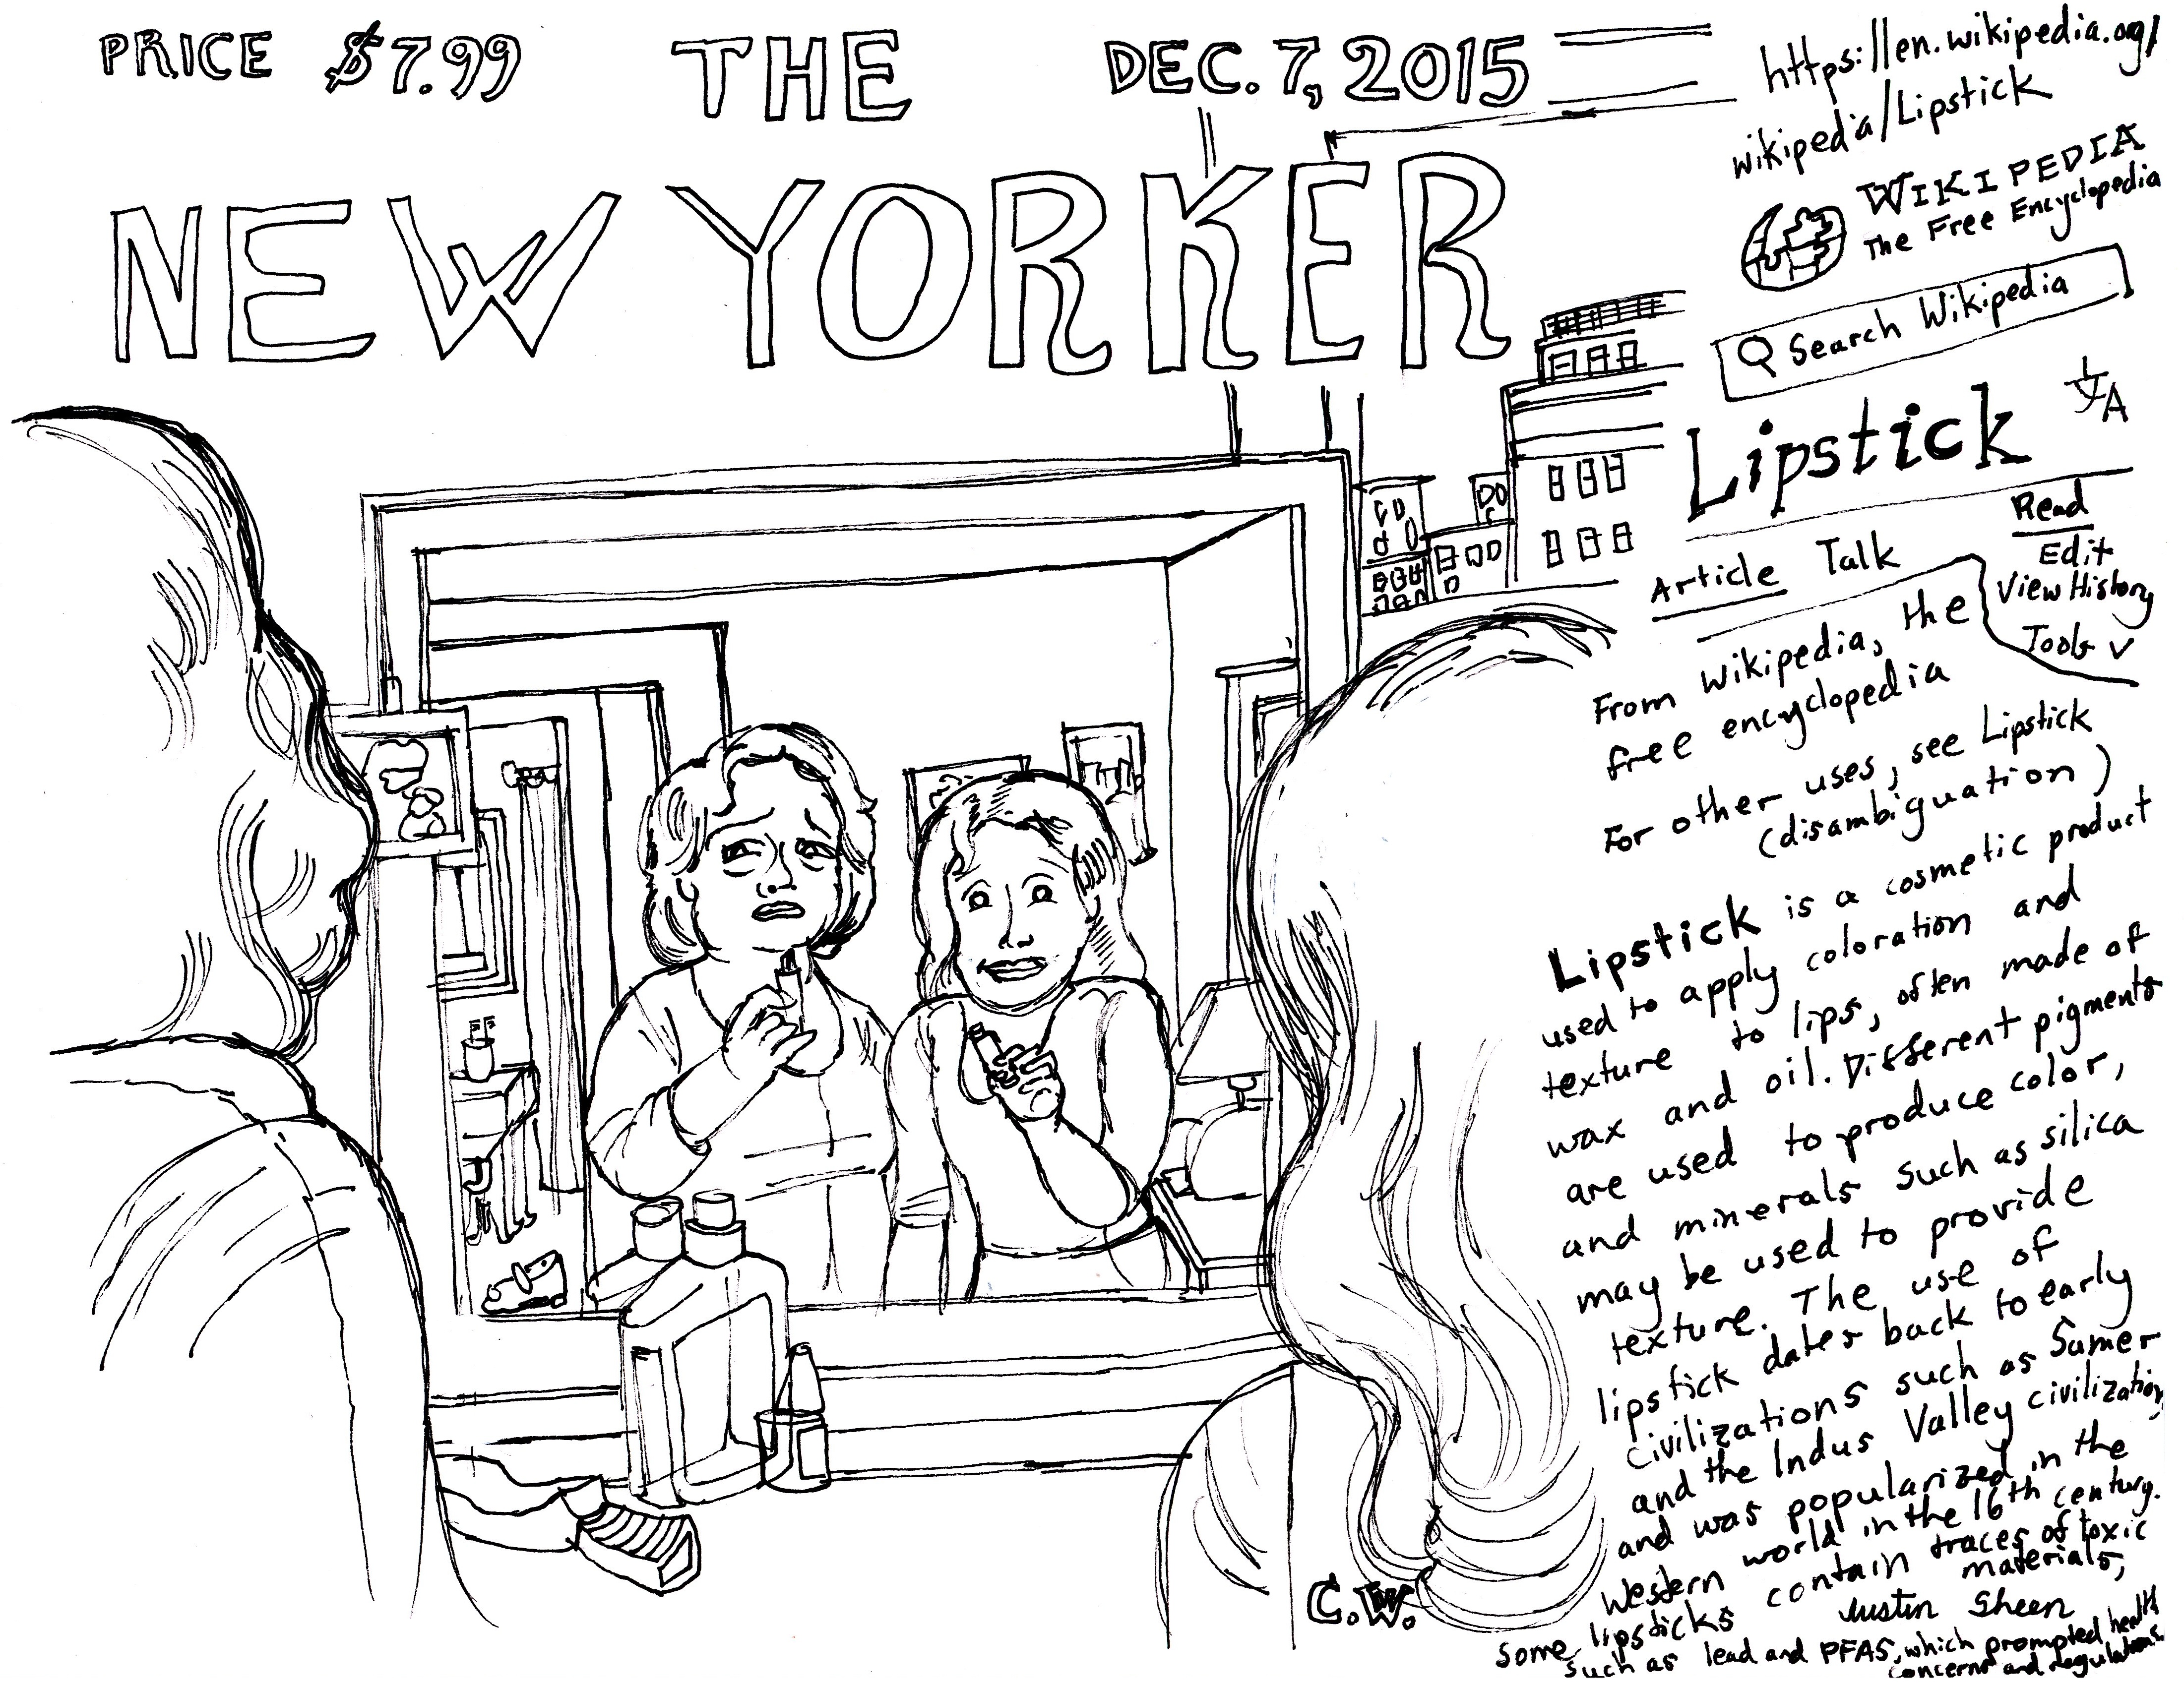 PRICE $7.99 THE DEC. 7, 2015
NEW YORKER
https://en.wikipedia.org/
wikipedia/Lipstick
WIKIPEDIA
The Free Encyclopedia
Search Wikipedia
Lipstick 文A
Article Talk
Read
Edit
View History
Tools
From Wikipedia, the
free encyclopedia
For other uses, see Lipstick
(disambiguation)
Lipstick is a cosmetic product
used to apply coloration and
texture to lips, often made of
wax and oil. Different pigments
are used to produce color,
and minerals such as silica
may be used to provide
texture. The use of
lipstick dates back to early
civilizations such as Sumer
and the Indus Valley civilization,
and was popularized in the
Western world in the 16th century.
Some lipsticks contain traces of toxic
materials,
such as lead and PFAS, which prompted health
concerns and regulations.
Justin Sheen
C.W.